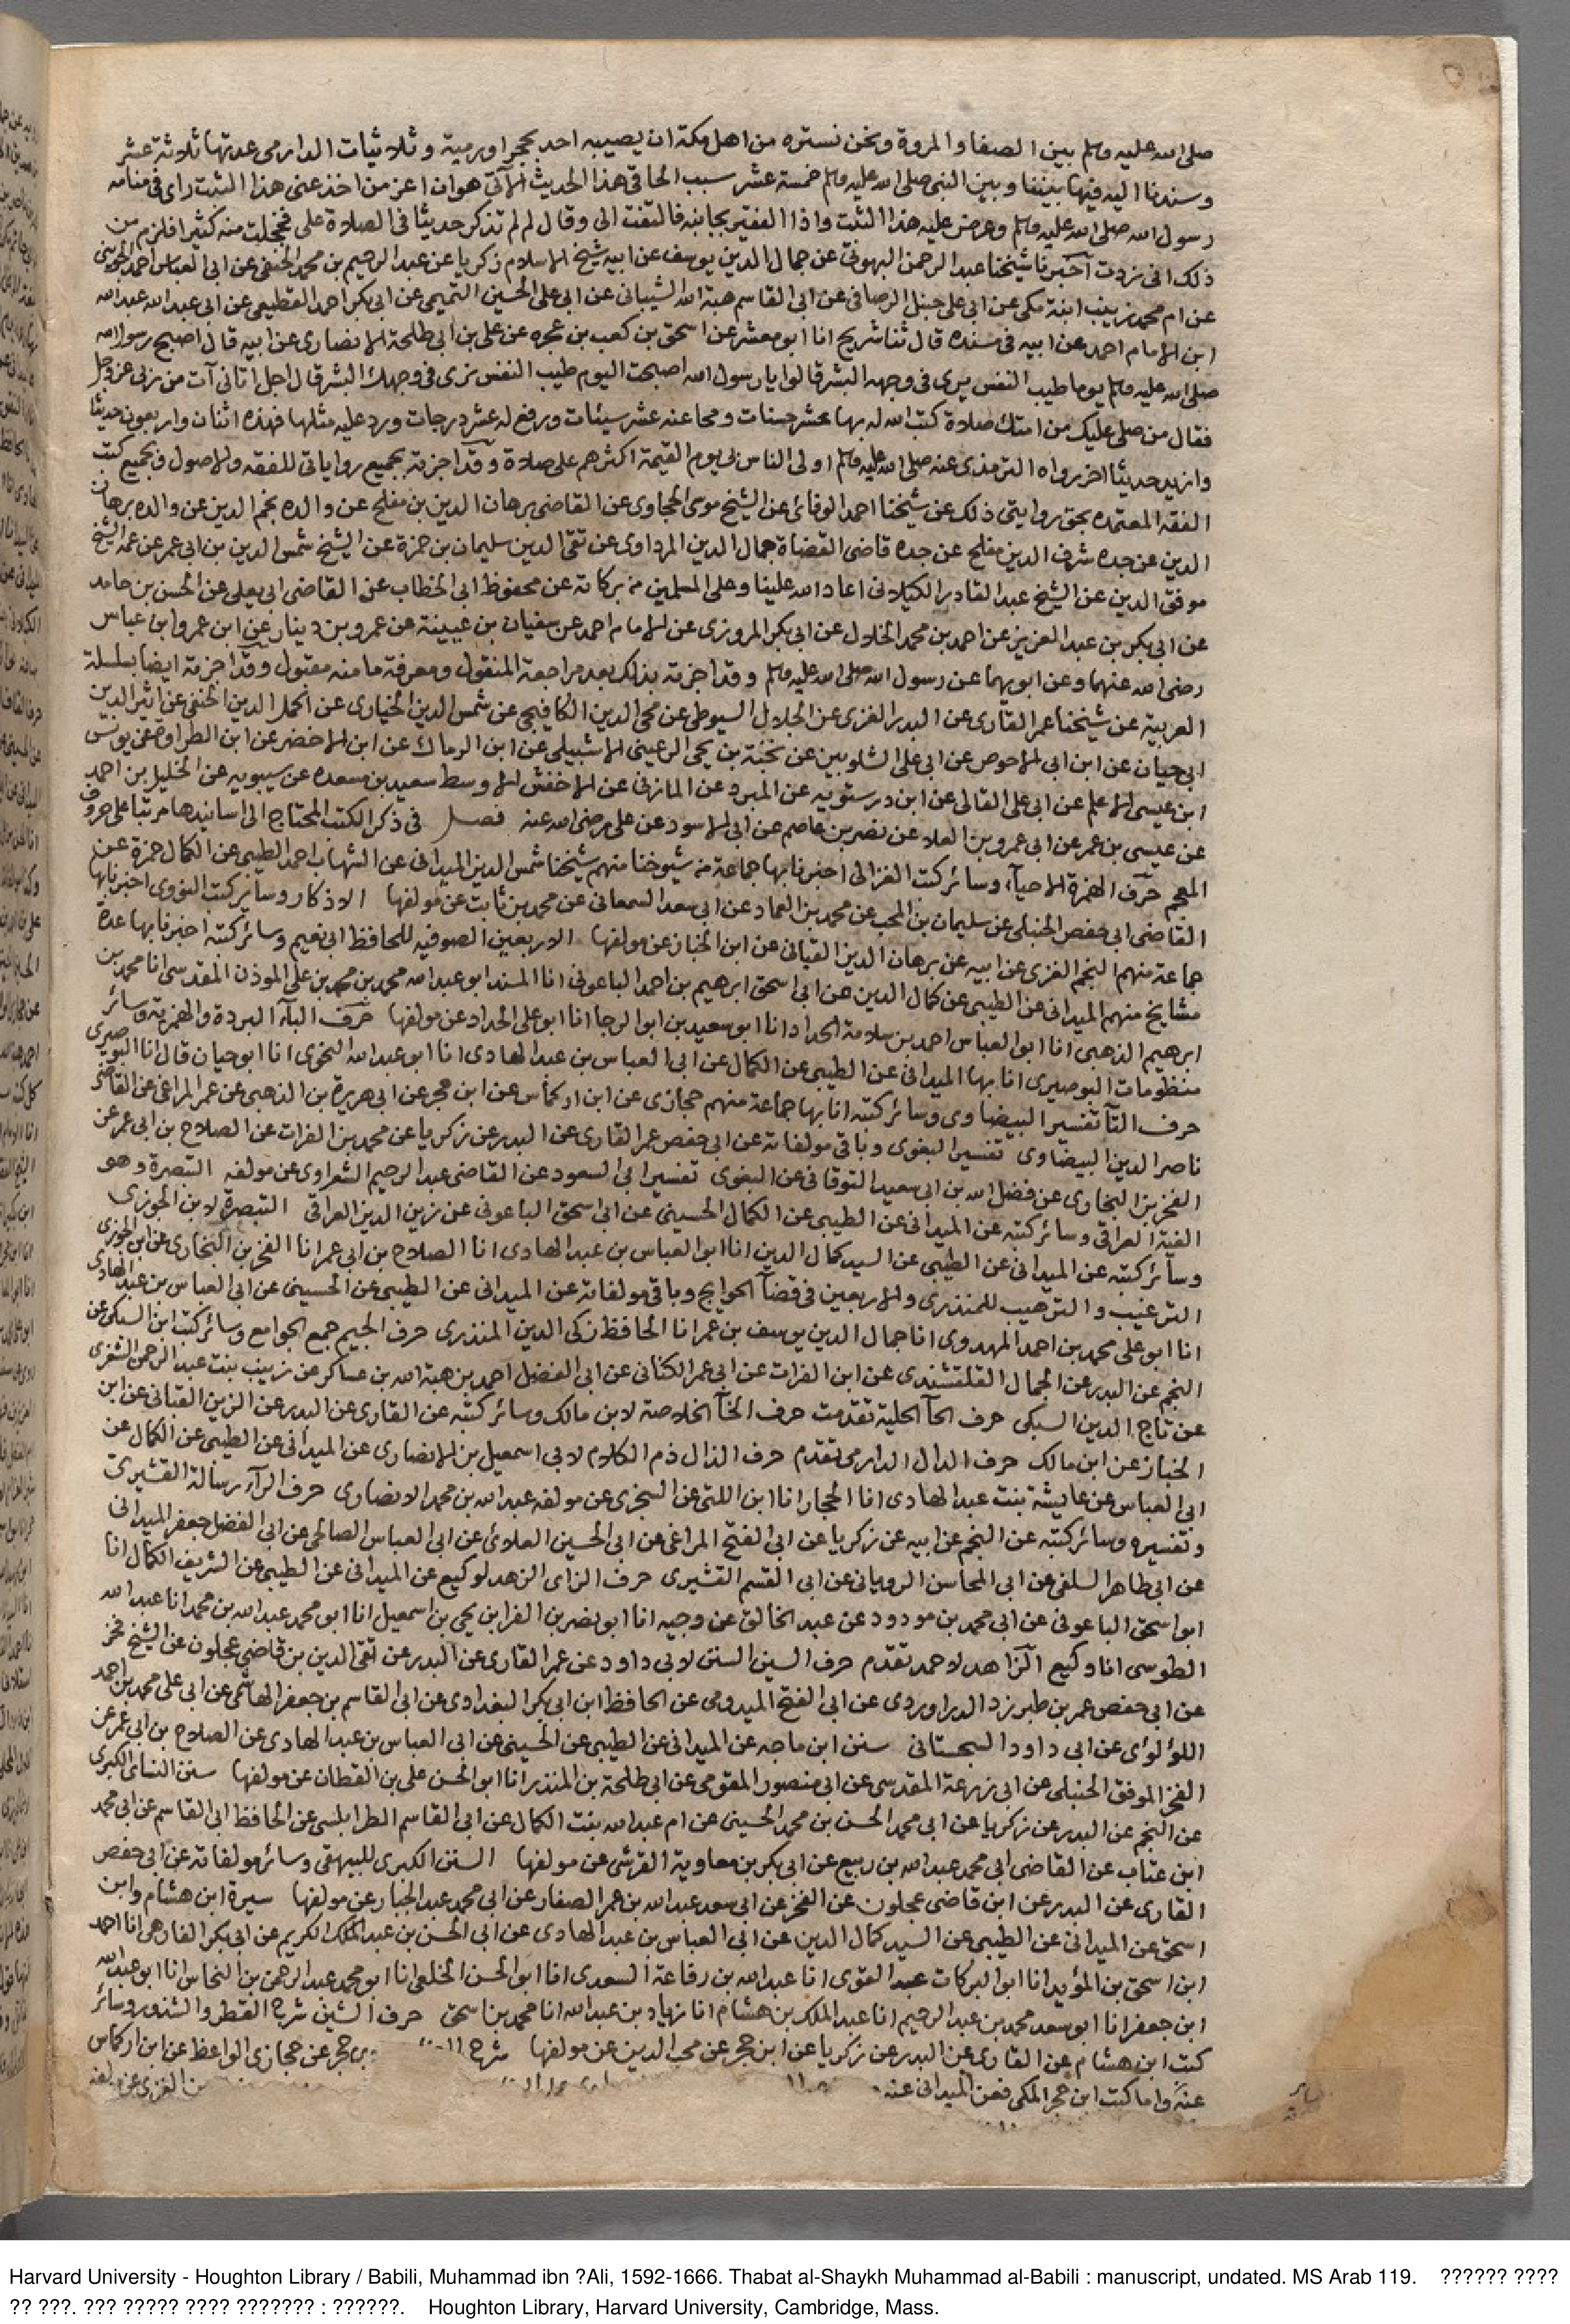 صلى الله عليه وسلم بين الصفا والمروة ونحن نستره من اهل مكة ان يصيبه احد بحجر او رمية وثلاثيات الدارمى عدتها ثلاثة عشر
وسندنا اليه فيها بيننا وبين النبى صلى الله عليه وسلم خمسة عشر سبب الحاقى هذا الحديث الآتى هو ان اعز من اخذ عنى هذا الثبت راى فى منامه
رسول الله صلى الله عليه وسلم وعرض عليه هذا الثبت واذا الفقير بجانبه فالتفت الى وقال لم لم تذكر حديثا فى الصلاة على فخجلت منه كثيرا فلزم من
ذلك انى زدت اخبرنا شيخنا عبد الرحمن البهوتى عن جمال الدين يوسف عن ابيه شيخ الاسلام زكريا عن عبد الرحيم بن محمد الحنفى عن ابى العباس احمد الجوخى
عن ام محمد زينب ابنة مكى عن ابى على حنبل الرصافى عن ابى القاسم هبة الله الشيبانى عن ابى على الحسين التميمى عن ابى بكر احمد القطيعى عن ابى عبد الله عبد الله
ابن الامام احمد عن ابيه فى مسنده قال ثنا شريح انا ابو معشر عن اسحق بن كعب بن عجره عن على بن ابى طلحة الانصارى عن ابيه قال اصبح رسول الله
صلى الله عليه وسلم يوما طيب النفس يرى فى وجهه البشر قالوا يا رسول الله اصبحت اليوم طيب النفس نرى فى وجهك البشر قال اجل اتانى آت من ربى عز وجل
فقال من صلى عليك من امتك صلاة كتب الله له بها عشر حسنات ومحا عنه عشر سيئات ورفع له عشر درجات ورد عليه مثلها فهذه اثنان واربعون حديثا
وازيد حديثا اخر رواه الترمذى عنه صلى الله عليه وسلم اولى الناس بى يوم القيمة اكثرهم على صلاة وقد اجزته بجميع رواياتى للفقه والاصول وبجميع كتب
الفقه المعتمده بحق روايتى ذلك عن شيخنا احمد الوفائى عن الشيخ موسى الحجاوى عن القاضى برهان الدين بن مفلح عن والده نجم الدين عن والده برهان
الدين عن جده شرف الدين مفلح عن جده قاضى القضاة جمال الدين المرداوى عن تقى الدين سليمان بن حمزة عن الشيخ شمس الدين بن ابى عمر عن عمه الشيخ
موفق الدين عن الشيخ عبد القادر الكيلانى اعاد الله علينا وعلى المسلمين من بركاته عن محفوظ ابى الخطاب عن القاضى ابى يعلى عن الحسن بن حامد
عن ابى بكر بن عبد العزيز عن احمد بن محمد الخلال عن ابى بكر المروزى عن الامام احمد عن سفيان بن عيينة عن عمرو بن دينار عن ابن عمر وابن عباس
رضى الله عنهما وعن ابويهما عن رسول الله صلى الله عليه وسلم وقد اجزته بذلك بعد مراجعة المنقول ومعرفة ما منه مقبول وقد اجزته ايضا بسلسلة
العربية عن شيخنا عمر القارى عن البدر الغزى عن الجلال السيوطى عن محى الدين الكافيجى عن شمس الدين الخبازى عن اكمل الدين الحنفى عن اثير الدين
ابى حيان عن ابن ابى الاحوص عن ابى على الشلوبين عن نجبة بن يحيى الرعينى الاشبيلى عن ابن الرماك عن ابن الاخضر عن ابن الطراوة عن يونس
ابن عيسى الاعلم عن ابى على القالى عن ابن درستويه عن المبرد عن المازنى عن الاخفش الاوسط سعيد بن مسعده عن سيبويه عن الخليل بن احمد
عن عيسى بن عمر عن ابى عمرو بن العلاء عن نصر بن عاصم عن ابى الاسود عن على رضى الله عنه فصل فى ذكر الكتب المحتاج الى اسانيدها مرتبا على حروف
المعجم حرف الهمزة الاحياء وسائر كتب الغزالى اخبرنا بها جماعة من شيوخنا منهم شيخنا شمس الدين الميدانى عن الشهاب احمد الطيبى عن الكمال حمزة عن
القاضى ابى حفص الحنبلى عن سليمان بن المحب عن محمد بن العماد عن ابى سعد السمعانى عن محمد بن ثابت عن مولفها الاذكار وسائر كتب النووى اخبرنا بها
جماعة منهم النجم الغزى عن ابيه عن برهان الدين القبانى عن ابن الخباز عن مولفها الاربعين الصوفيه للحافظ ابى نعيم وسائر كتبه اخبرنا بها عدة
مشايخ منهم الميدانى عن الطيبى عن كمال الدين عن ابى اسحق ابرهيم بن احمد الباعونى انا المسند ابو عبد الله محمد بن محمد بن على الموذن المقدسى انا محمد بن
ابرهيم الذهبى انا ابو العباس احمد بن سلامة الحداد انا ابو سعيد بن ابو الرجا انا ابو على الحداد عن مولفها حرف البآء البردة والهمزية وسائر
منظومات البوصيرى انا بها الميدانى عن الطيبى عن الكمال عن ابى العباس بن عبد الهادى انا ابو عبد الله النحوى انا ابو حيان قال انا البوصيرى
حرف التآ تفسير البيضاوى وسائر كتبه انا بها جماعة منهم حجازى عن ابن اركماس عن ابن حجر عن ابى هريرة بن الذهبى عن عمر المراغى عن القاضى
ناصر الدين البيضاوى تفسير البغوى وباقى مولفاته عن ابى حفص عمر القارى عن البدر عن زكريا عن محمد بن الفرات عن الصلاح بن ابى عمر عن
الفخر بن البخارى عن فضل الله بن ابى سعيد التوقانى عن البغوى تفسير ابى السعود عن القاضى عبد الرحيم الشعراوى عن مولفه التبصرة وهو
الفية العراقى وسائر كتبه عن الميدانى عن الطيبى عن الكمال الحسينى عن ابى اسحق الباعونى عن زين الدين العراقى التبصرة لابن الجوزى
وسائر كتبه عن الميدانى عن الطيبى عن السيد كمال الدين انا ابو العباس بن عبد الهادى انا الصلاح بن ابى عمر انا الفخر بن البخارى عن ابن الجوزى
الترغيب والترهيب للمنذرى والاربعين فى قضآ الحوايج وباقى مولفاته عن الميدانى عن الطيبى عن الحسينى عن ابى العباس بن عبد الهادى
انا ابو على محمد بن احمد المهدوى انا جمال الدين يوسف بن عمر انا الحافظ زكى الدين المنذرى حرف الجيم جمع الجوامع وسائر كتب ابن السبكى عن
النجم عن البدر عن الجمال القلقشندى عن ابن الفرات عن ابى عمر الكنانى عن ابى الفضل احمد بن هبة الله بن عساكر عن زينب بنت عبد الرحمن الشعرى
عن تاج الدين السبكى حرف الحآ الحلية تقدمت حرف الخآ الخلاصة لابن مالك وسائر كتبه عن القارى عن البدر عن الزين القبانى عن ابن
الخباز عن ابن مالك حرف الدال الدارمى تقدم حرف الذال ذم الكلام لابى اسمعيل بن الانصارى عن الميدانى عن الطيبى عن الكمال عن
ابى العباس عن عايشة بنت عبد الهادى انا الحجار انا ابن اللتى عن السجزى عن مولفه عبد الله بن محمد الانصارى حرف الرآء رسالة القشيرى
وتفسيره وسائر كتبه عن النجم عن ابيه عن زكريا عن ابى الفتح المراغى عن ابى الحسين العلائى عن ابى العباس الصالحى عن ابى الفضل جعفر الميدانى
عن ابى طاهر السلفى عن ابى المحاسن الرويانى عن ابى القسم القشيرى حرف الزاى الزهد لوكيع عن الميدانى عن الطيبى عن الشريف الكمال انا
ابو اسحق الباعونى عن ابى محمد بن مودود عن عبد الخالق عن وجيه انا ابو نصر بن الفرا بن يحيى بن اسمعيل انا ابو محمد عبد الله بن محمد انا عبد الله
الطوسى انا وكيع الزاهد لاحمد تقدم حرف السين السنن لابى داود عن عمر القارى عن البدر عن تقى الدين بن قاضى عجلون عن الشيخ فخر
عن ابى حفص عمر بن طبرزد الدراوردى عن ابى الفتح الميدومى عن الحافظ ابن ابى بكر البغدادى عن ابى القاسم بن جعفر الهاشمى عن ابى على محمد بن احمد
اللؤلوى عن ابى داود السجستانى سنن ابن ماجه عن الميدانى عن الطيبى عن الحسينى عن ابى العباس بن عبد الهادى عن الصلاح بن ابى عمر عن
الفخر الموفق الحنبلى عن ابى زرعة المقدسى عن ابى منصور المقومى عن ابى طلحة بن المنذر انا ابو الحسن على بن القطان عن مولفها سنن النساى الكبرى
عن النجم عن البدر عن زكريا عن ابى محمد الحسن بن محمد الحسينى عن ام عبد الله بنت الكمال عن ابى القاسم الطرابلسى عن الحافظ ابى القاسم عن ابى محمد
ابن عتاب عن القاضى ابى محمد عبد الله بن ربيع عن ابى بكر بن معاوية القرشى عن مولفها السنن الكبرى للبيهقى وسائر مولفاته عن ابى حفص
القارى عن البدر عن ابن قاضى عجلون عن الفخر عن ابى سعد عبد الله بن عمر الصفار عن ابى محمد عبد الجبار عن مولفها سيرة ابن هشام وابن
اسحق عن الميدانى عن الطيبى عن السيد كمال الدين عن ابى العباس بن عبد الهادى عن ابى الحسن بن عبد الملك الكريم عن ابى بكر الفارهى انا احمد
ابن اسحق بن المؤيد انا ابو البركات عبد القوى انا عبد الله بن رفاعة السعدى انا ابو الحسن الخلعى انا ابو محمد عبد الرحمن بن النحاس انا ابو عبد الله
ابن جعفر انا ابو سعد محمد بن عبد الرحيم انا عبد الملك بن هشام انا زياد بن عبد الله انا محمد بن اسحق حرف الشين شرح القطر والشذور وسائر
كتب ابن هشام عن القارى عن البدر عن زكريا عن ابن حجر عن محب الدين عن مولفها شرح حجر عن حجازى الواعظ عن ابن اركماس
عنه واما كتب ابن حجر المكى فعن الميدانى عنه الغزى عن مولفه